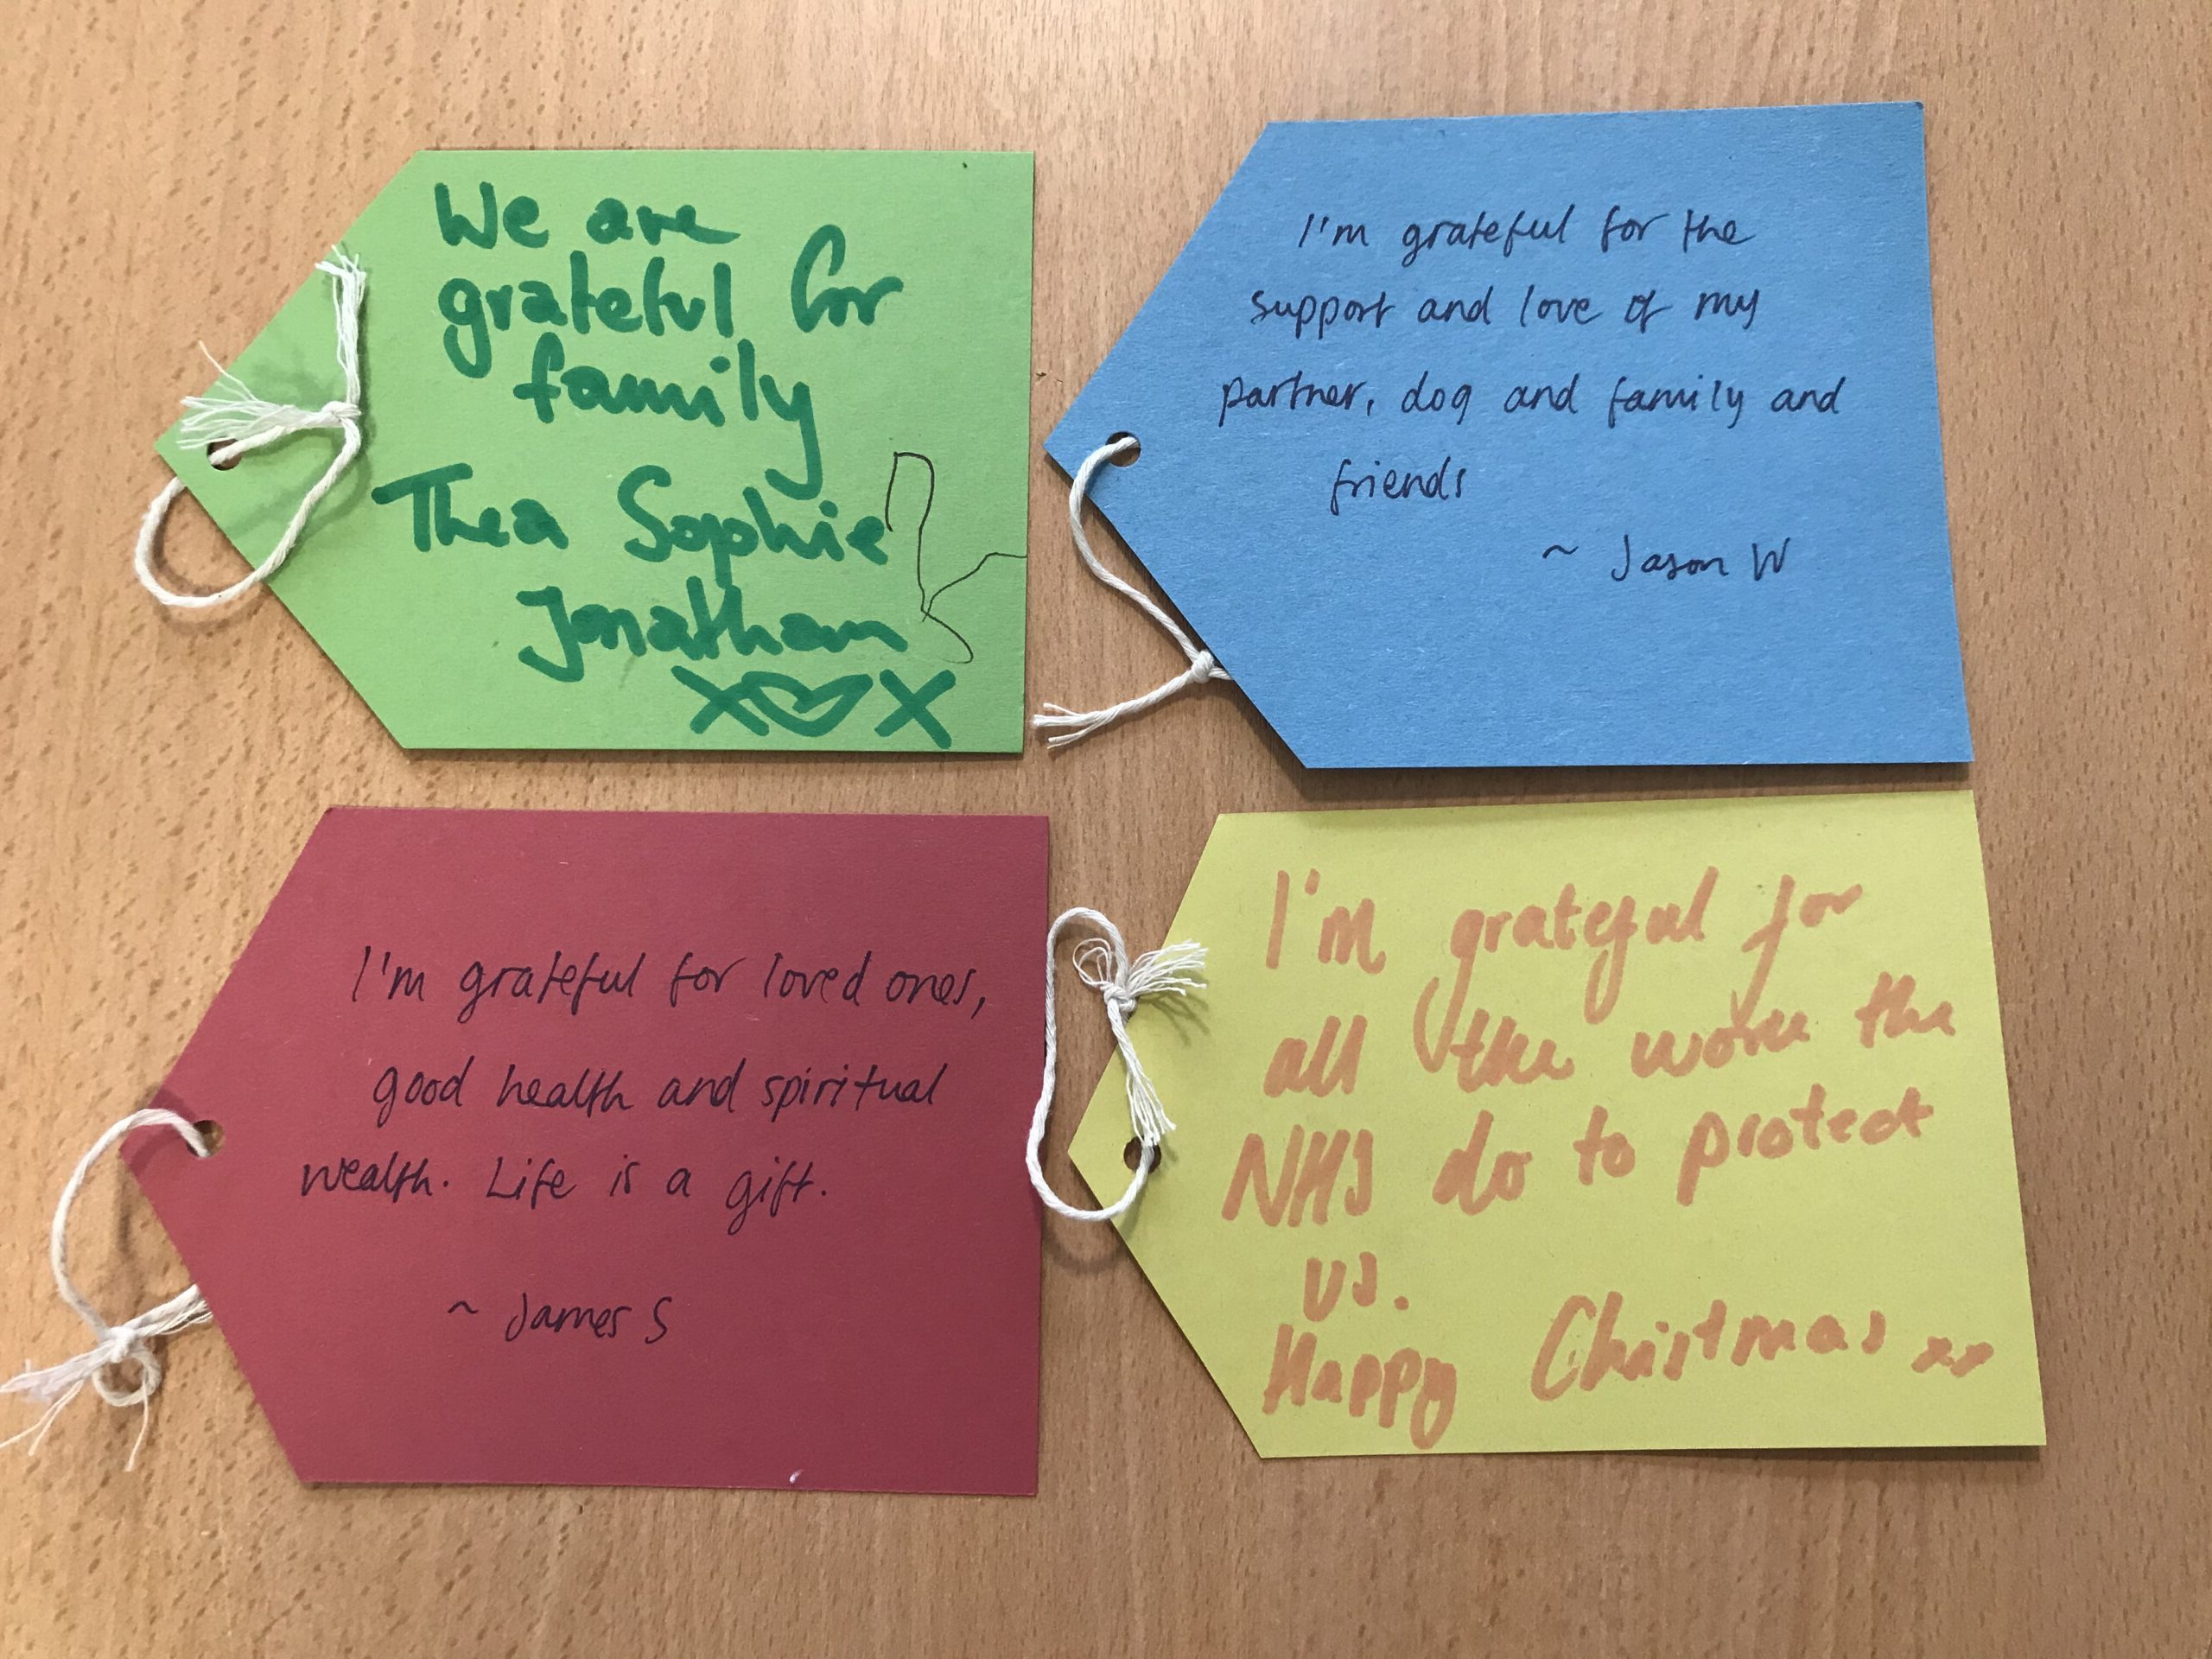 We are
grateful for
family
Thea Sophie
Jonathan
X♡X
I'm grateful for the
support and love of my
partner, dog and family and
friends
~ Jason W
I'm grateful for loved ones,
good health and spiritual
wealth. Life is a gift.
~ James S
I'm grateful for
all the work the
NHS do to protect
us.
Happy Christmas xx